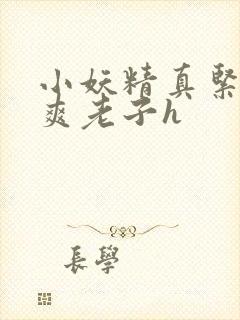 小妖精真緊
爽老子h
長學